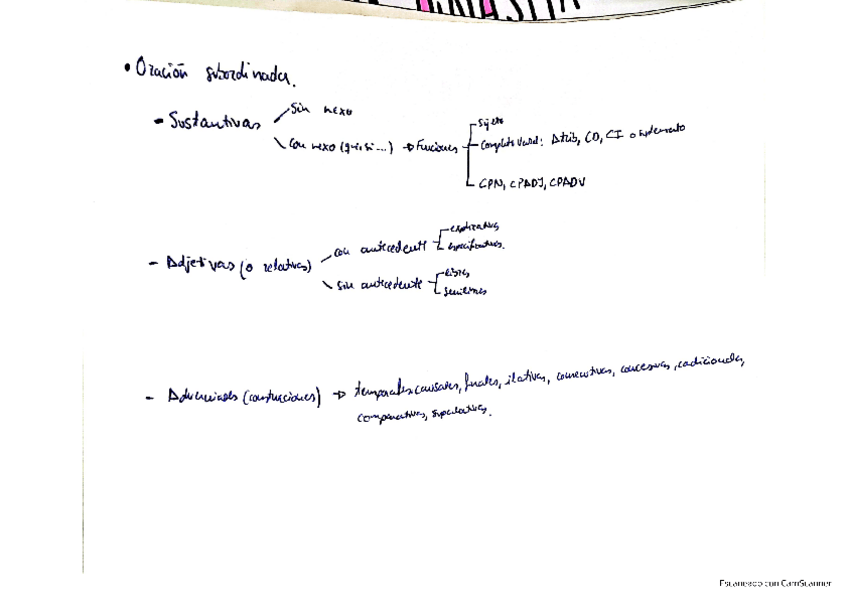 • Oración subordinada.
- Sustantivas
Sin nexo
Con nexo (que, si ...) → Funciones
Sujeto
Complemto Verbal: Atrib, CD, CI o suplemento
CPN, CPADJ, CPADV
- Adjetivas (o relativas)
con antecedente
explicativas
especificativas.
sin antecedente
libres
semilibres
- Adverbiales (construcciones) → temporales, causales, finales, ilativas, consecutivas, concesivas, condicionales,
comparativas, superlativas.
Escaneado con CamScanner